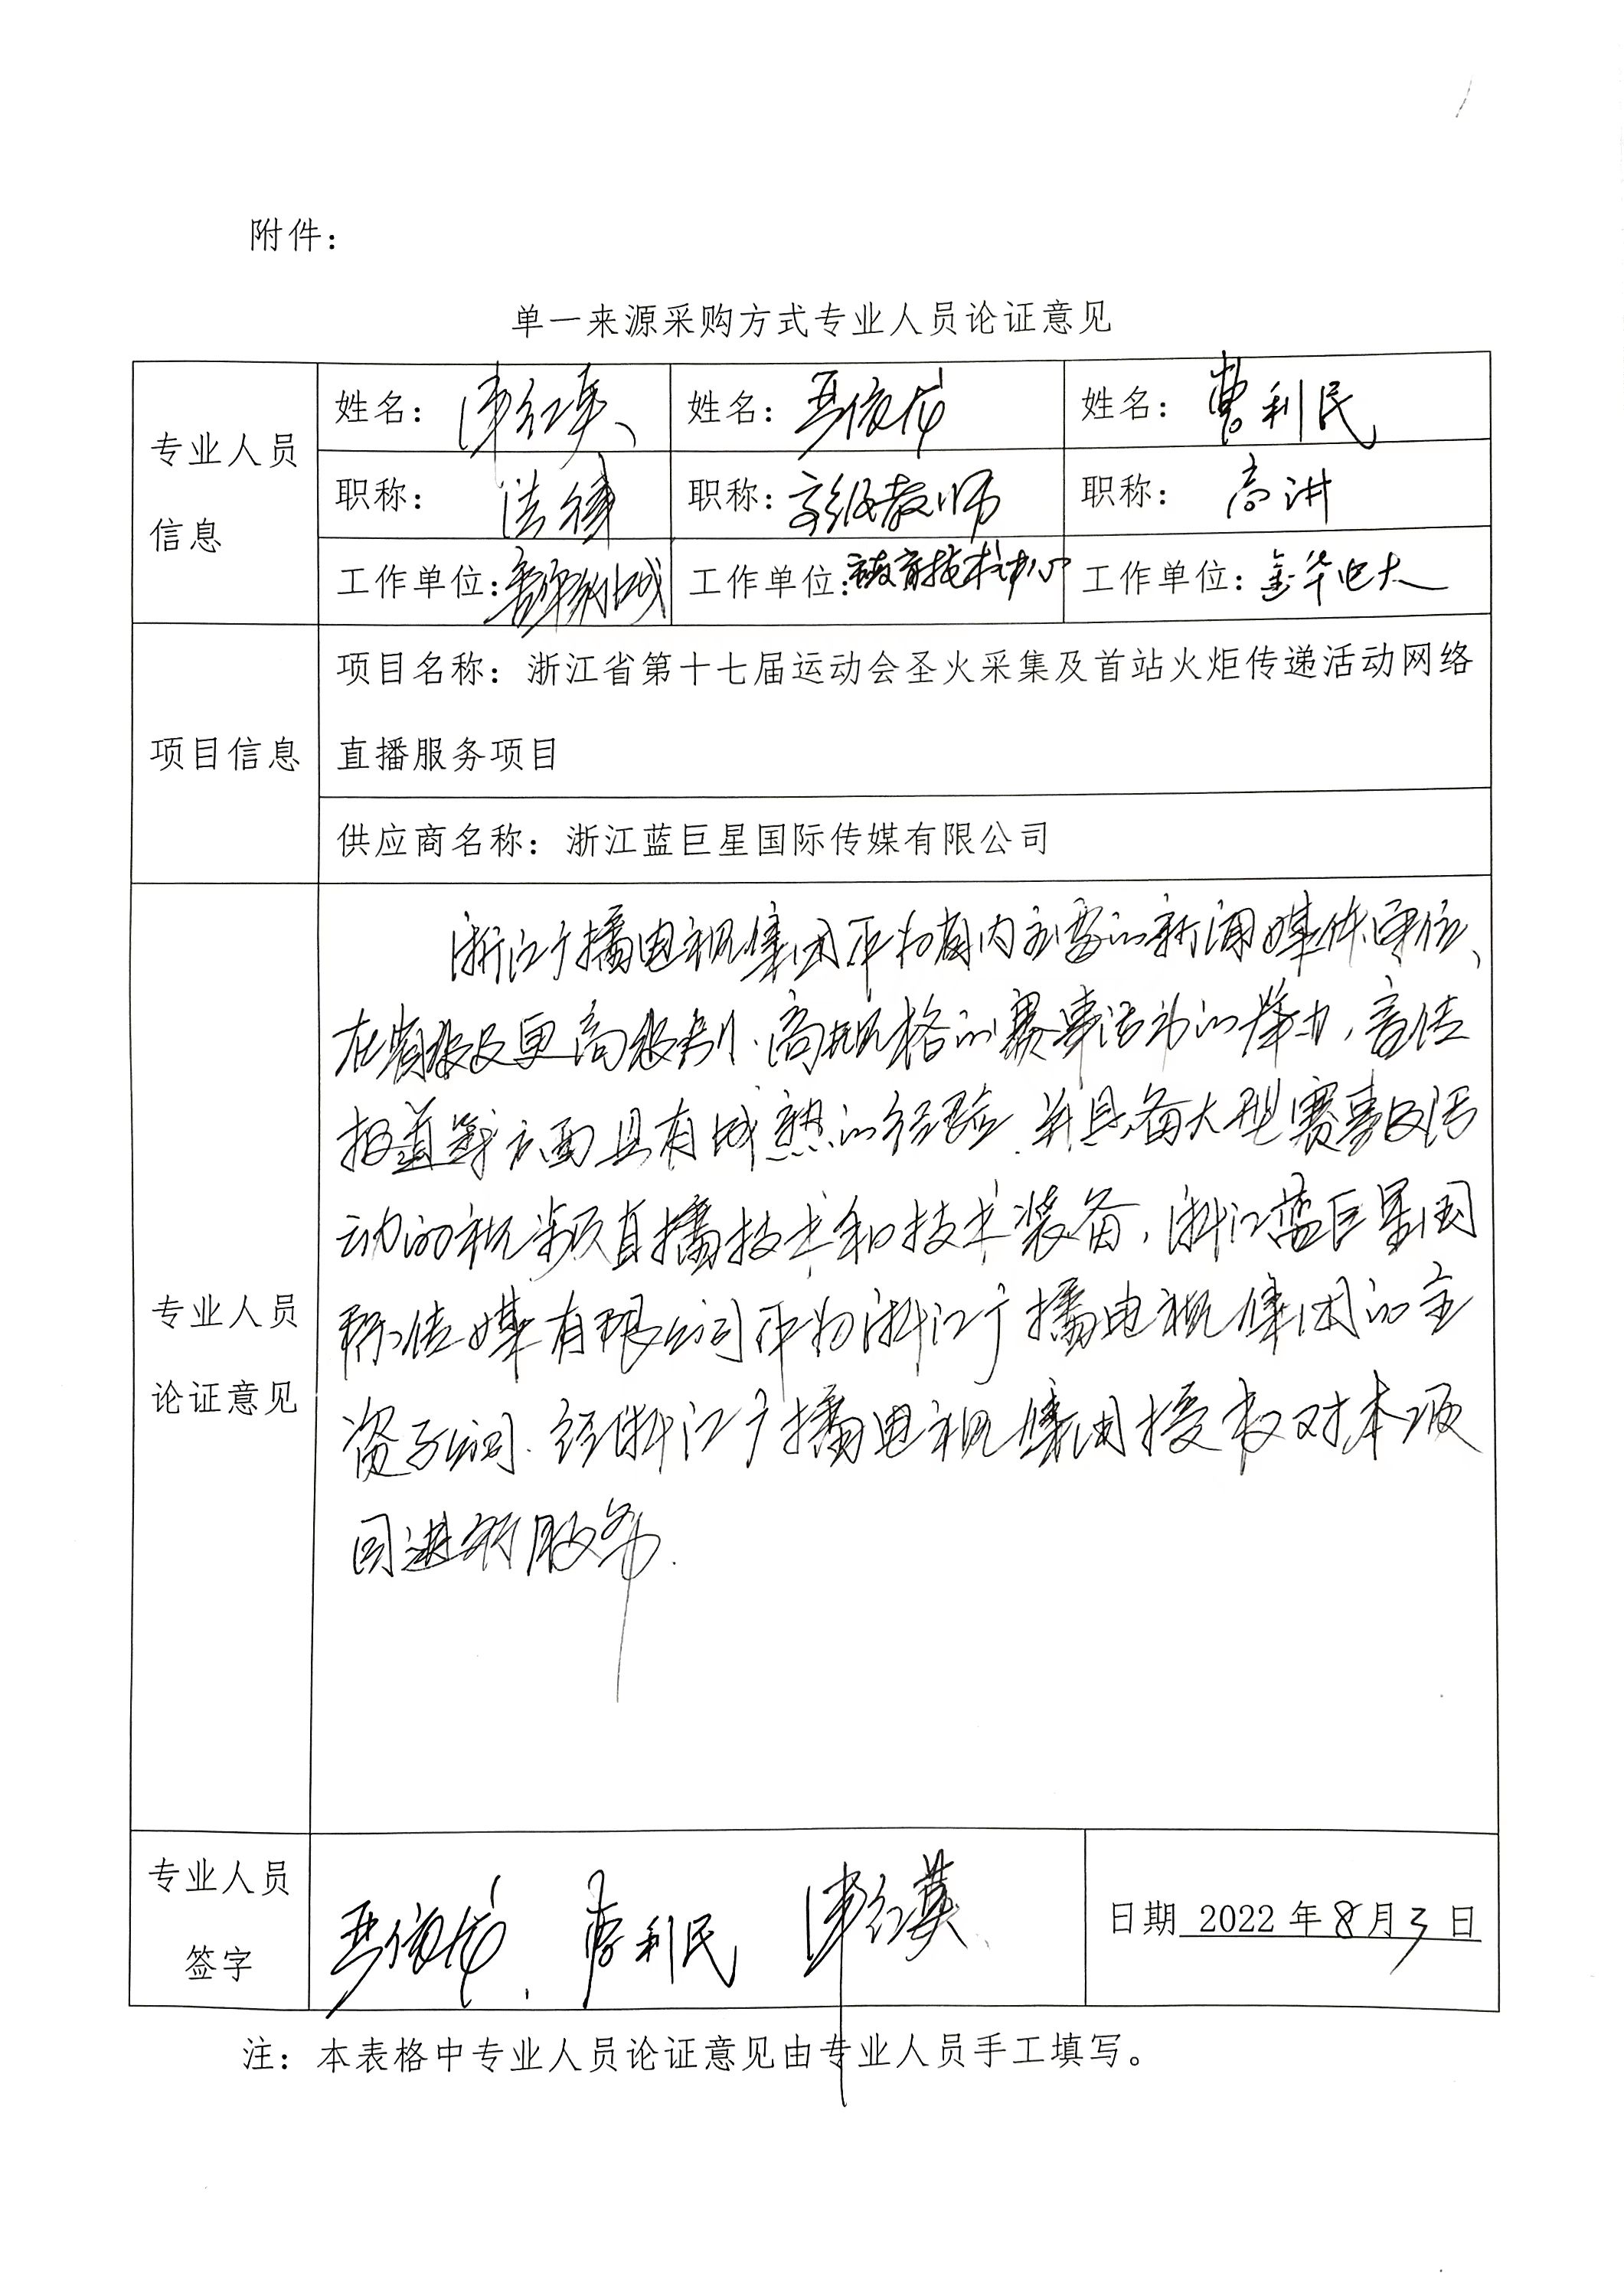 附件：
单一来源采购方式专业人员论证意见
专业人员
信息
姓名： 姓名： 姓名：曹利民
职称：法律 职称：高级教师 职称：高讲
工作单位： 工作单位：教育技术中心 工作单位：金华电大
项目信息
项目名称：浙江省第十七届运动会圣火采集及首站火炬传递活动网络
直播服务项目
供应商名称：浙江蓝巨星国际传媒有限公司
专业人员
论证意见
浙江广播电视集团作为省内主要的新闻媒体单位、
在省级及更高级别、高规格的赛事活动的举办，宣传
报道等方面具有成熟的经验，并具备大型赛事及活
动的视频直播技术和技术装备，浙江蓝巨星国
际传媒有限公司作为浙江广播电视集团的全
资子公司，经浙江广播电视集团授权对本项
目进行服务.
专业人员
签字
曹利民
日期 2022年8月3日
注：本表格中专业人员论证意见由专业人员手工填写。